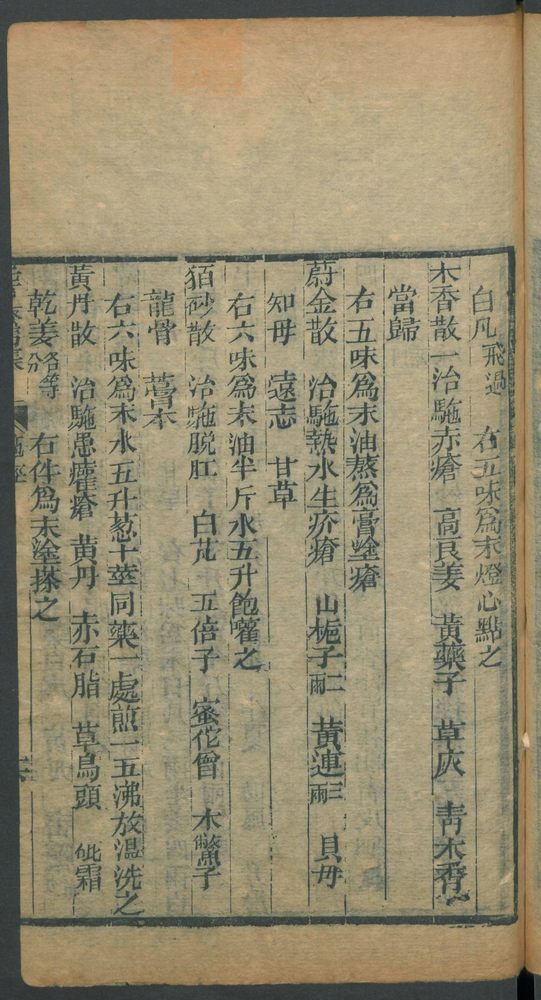 白凡飛過　右五味為末燈心點之
木香散一治駞赤瘡　高良姜　黃藥子　草灰　青木香
當歸
右五味為末油蒸為膏塗瘡
蔚金散　治駞熱水生疥瘡　山梔子二兩　黃連三兩　貝母
知母　遠志　甘草
右六味為末油半斤水五升飽嚾之
硇砂散　治駞脱肛　白芃　五倍子　蜜佗曾　木鱉子
龍骨　藁本
右六味為末水五升葱十莖同藥一處煎一五沸放温洗之
黃丹散　治駞患瘽瘡　黃丹　赤石脂　草烏頭　砒霜
乾姜各等　右件為末塗搽之